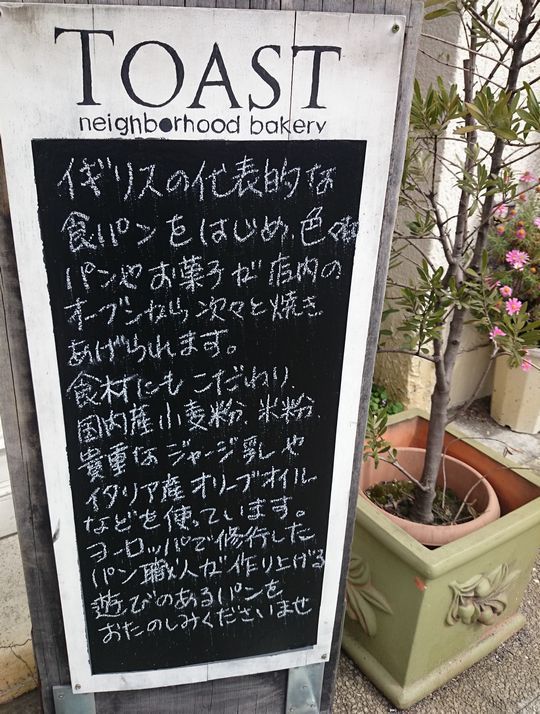 TOAST
neighborhood bakery
イギリスの代表的な
食パンをはじめ、色々な
パンやお菓子が店内の
オーブンから次々と焼き
あげられます。
食材にもこだわり、
国内産小麦粉、米粉、
貴重なジャージ乳や
イタリア産オリーブオイル
などを使っています。
ヨーロッパで修行した
パン職人が作り上げる
遊びのあるパンを
おたのしみくださいませ